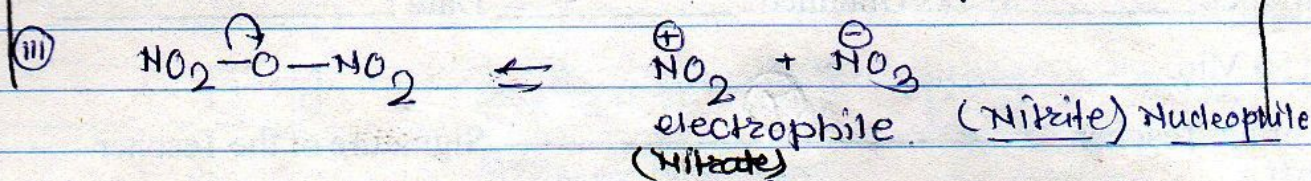 (iii) NO₂—O—NO₂ ⇌ N⊕O₂ + N⊖O₃
electrophile. (Nitrite) Nucleophile
(Nitrate)